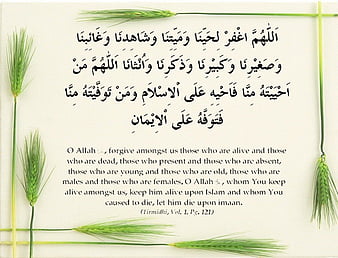 اَللّٰهُمَّ اغْفِرْ لِحَيِّنَا وَمَيِّتِنَا وَشَاهِدِنَا وَغَائِبِنَا
وَصَغِيْرِنَا وَكَبِيْرِنَا وَذَكَرِنَا وَاُنْثَانَا اَللّٰهُمَّ مَنْ
اَحْيَيْتَهُ مِنَّا فَاَحْيِهِ عَلَى الْاِسْلَامِ وَمَنْ تَوَفَّيْتَهُ مِنَّا
فَتَوَفَّهُ عَلَى الْاِيْمَانِ
O Allah , forgive amongst us those who are alive and those
who are dead, those who present and those who are absent,
those who are young and those who are old, those who are
males and those who are females. O Allah , whom You keep
alive amongst us, keep him alive upon Islam and whom You
caused to die, let him die upon imaan.
(Tirmidhi, Vol. 1, Pg. 121)